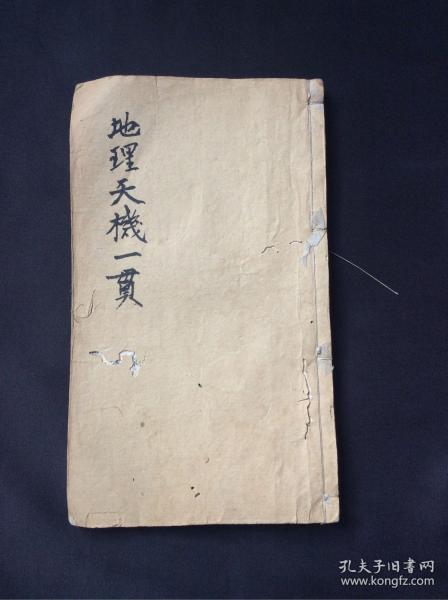 地理天機一貫
孔夫子旧书网
www.kongfz.com